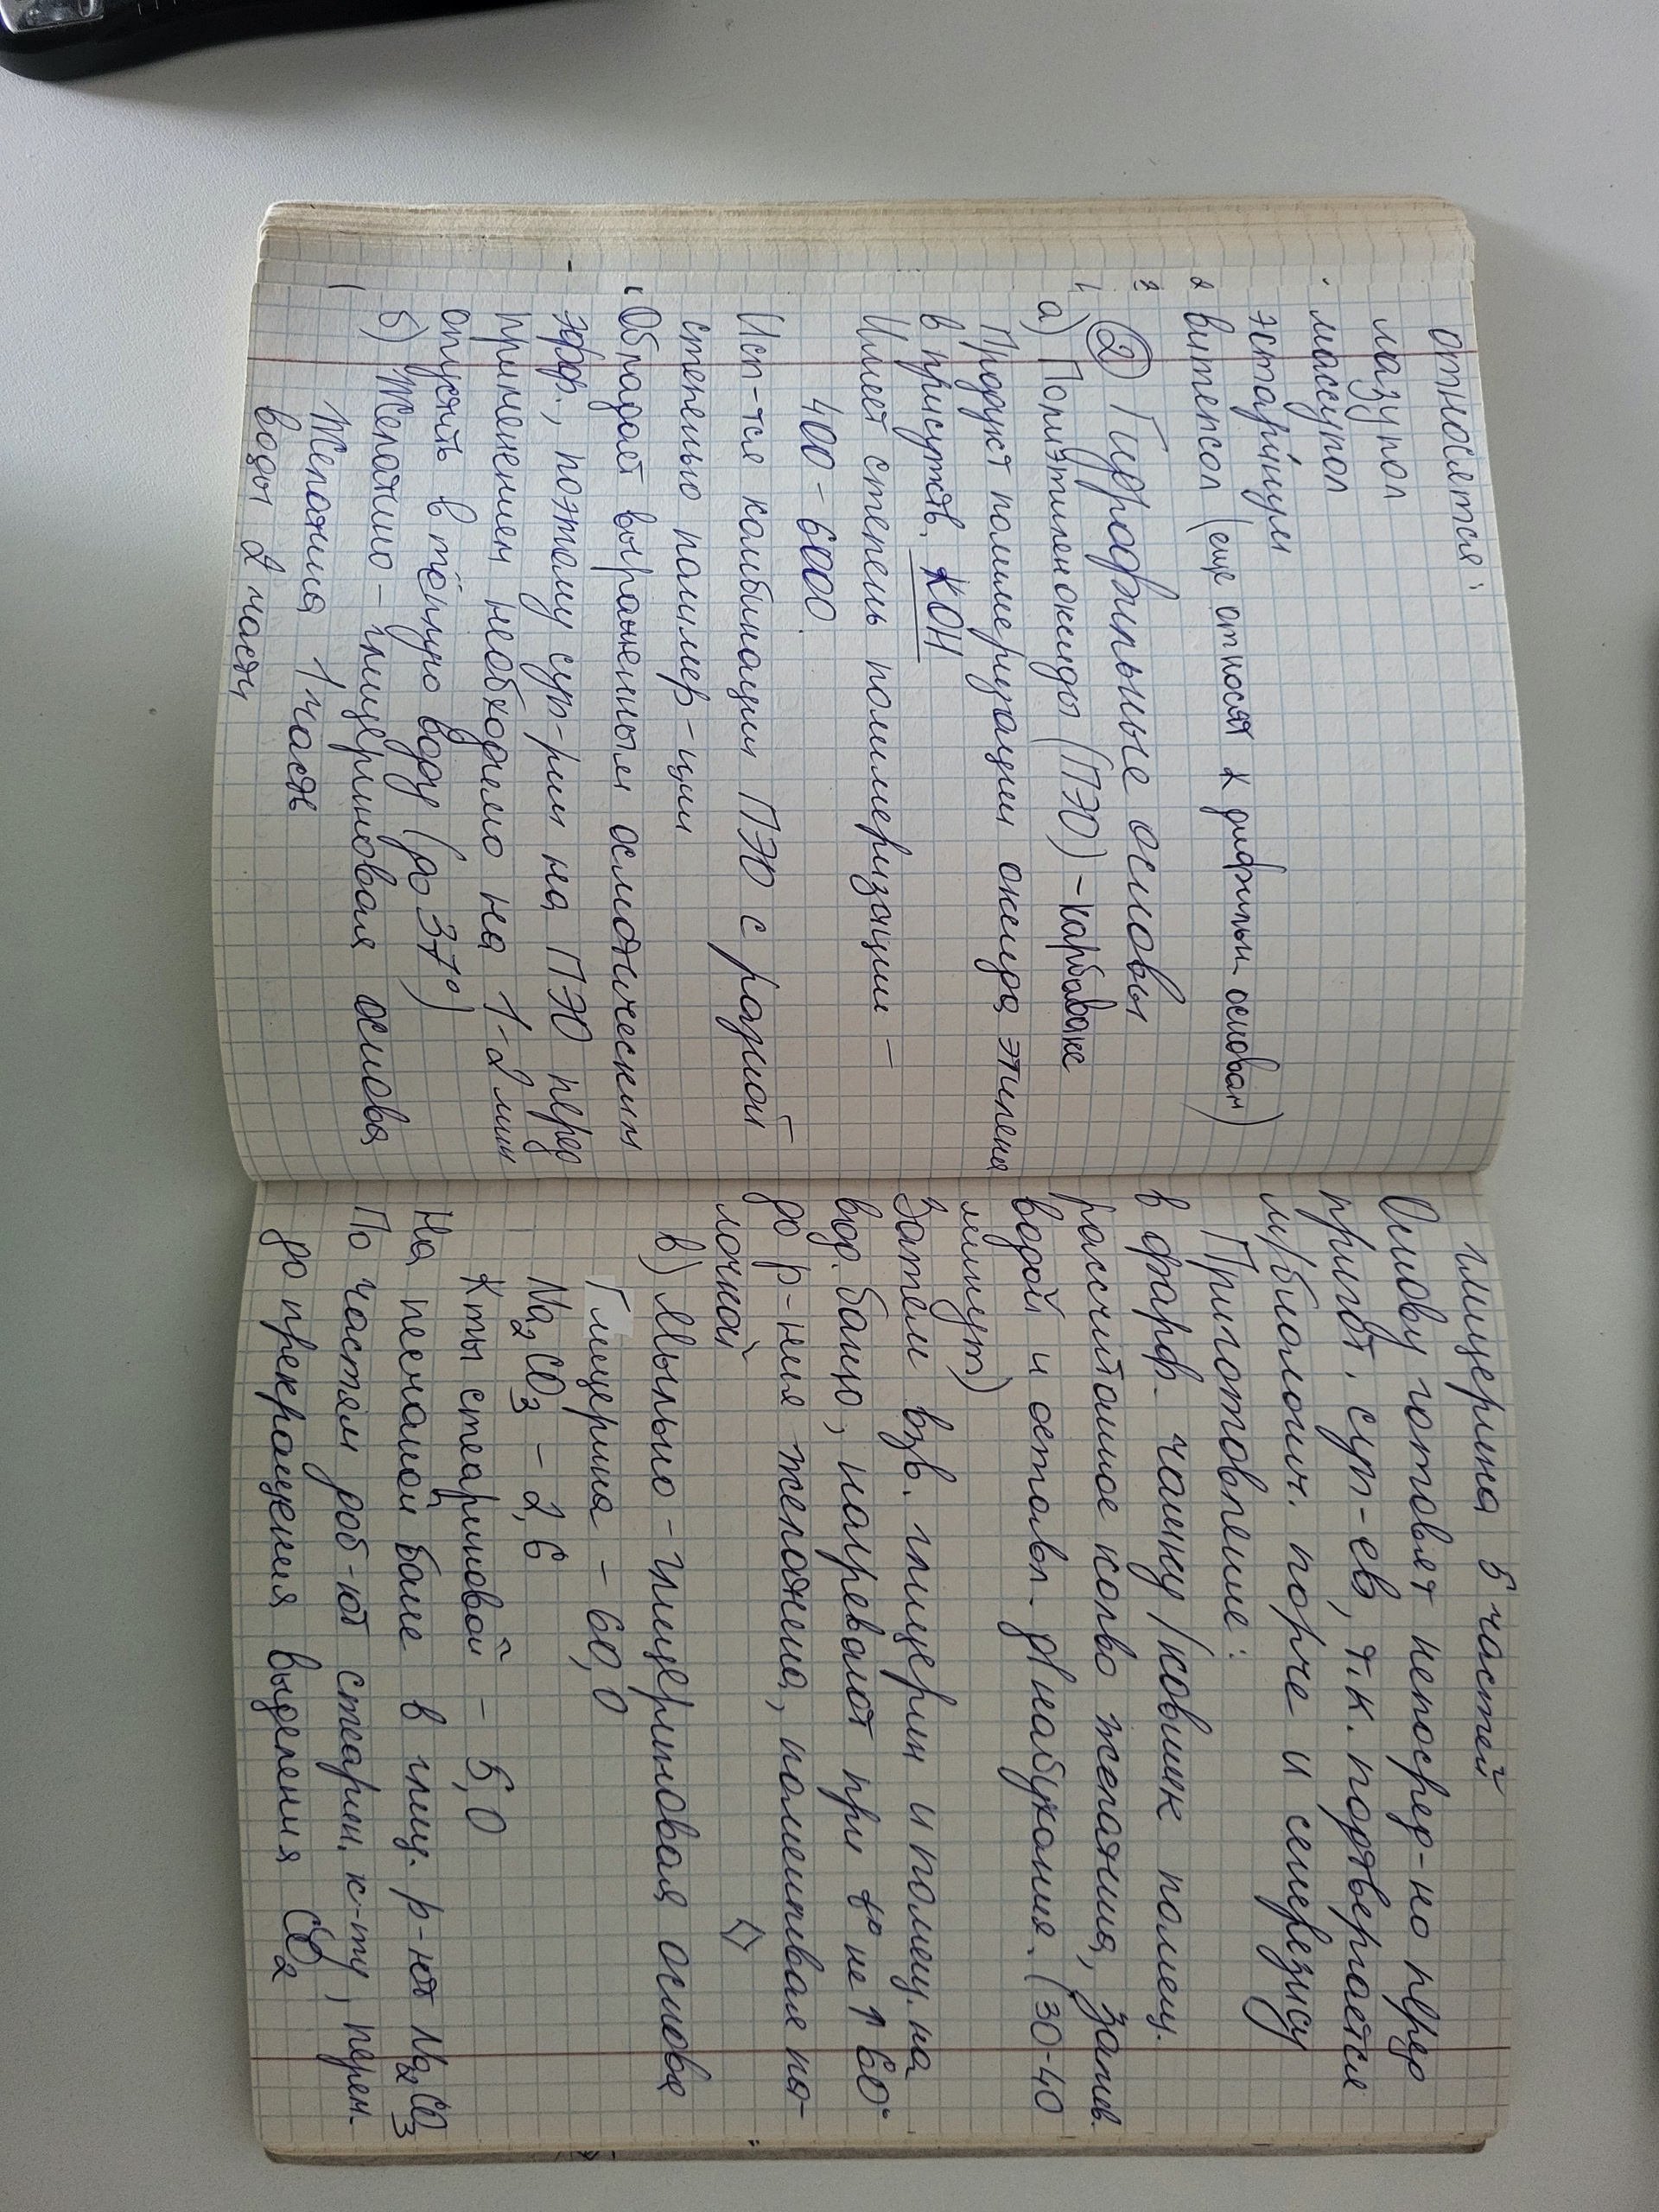 относятся:
лазупол
массупол
эстаринум
витепсол (еще относят к дифильн. основам)
② Гидрофильные основы
а) Полиэтиленоксиды (ПЭО) – карбоваке
Продукт полимеризации оксида этилена
в присутств. КОН
Имеет степень полимеризации –
400 – 6000.
Исп-тся комбинации ПЭО с разной
степенью полимер-ции
Обладает выраженным осмотическим
эфф., поэтому суп-рии на ПЭО перед
применением необходимо на 1-2 мин
опустить в тёплую воду (до 37°)
б) Желатино – глицериновая основа
Желатина 1 часть
воды 2 части
глицерина 5 частей
Основу готовят непосред-но перед
пригот. суп-ев, т.к. подвергается
м/биологич. порче и синерезису
Приготовление:
в фарф. чашку/ковшик помещ.
рассчитанное кол-во желатина, залив.
водой и оставл. д/набухания. (30-40
минут)
Затем взв. глицерин и помещ. на
вод. баню, нагревают при t° не ↑ 60°
до р-ния желатина, помешивая па-
лочкой
в) Мыльно – глицериновая основа
Глицерина – 60,0
Na2CO3 – 2,6
К-ты стеариновой – 5,0
На песчаной бане в глиц. р-ют Na2CO3
По частям доб-ют стеарин. к-ту, перем.
до прекращения выделения CO2